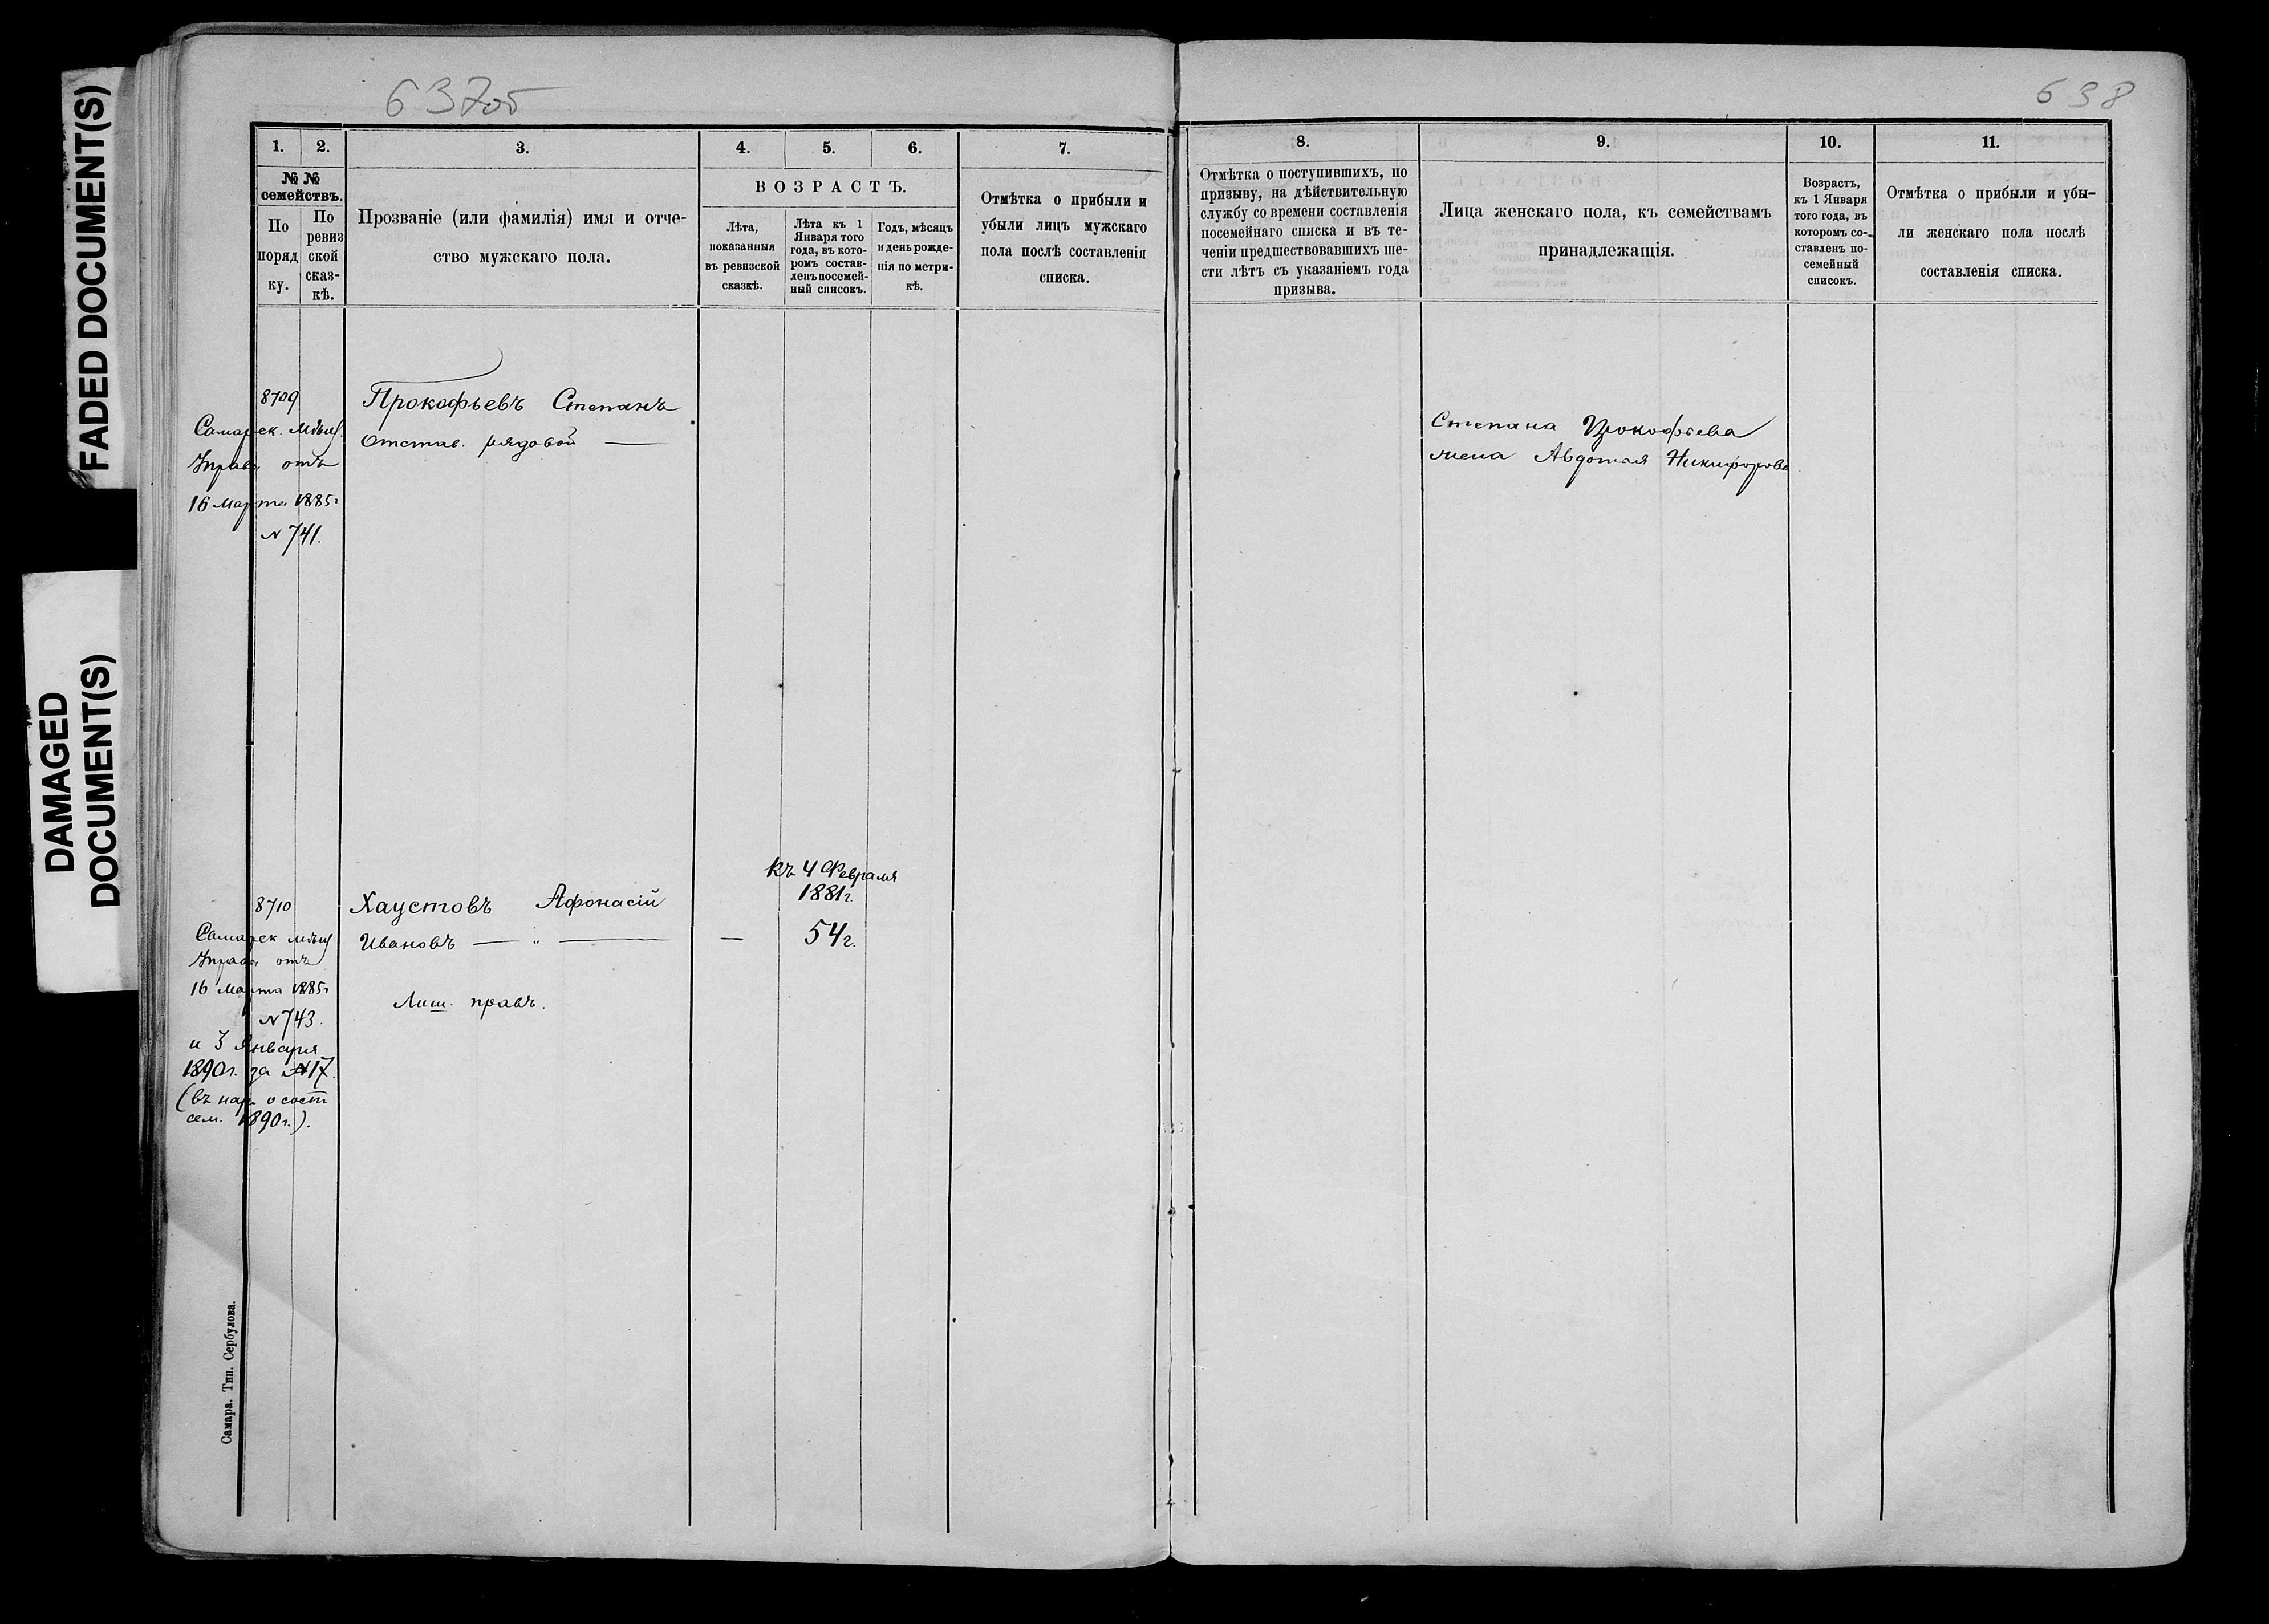 FADED DOCUMENT(S)
DAMAGED
DOCUMENT(S)
637об
1. 2. 3. 4. 5. 6. 7.
№ №
семействъ.
По
поряд
ку.
По
ревиз
ской
сказ-
кѣ.
Прозваніе (или фамилія) имя и отче-
ство мужскаго пола.
ВОЗРАСТЪ.
Лѣта,
показанныя
въ ревизской
сказкѣ.
Лѣта къ 1
Января того
года, въ кото-
ромъ состав-
ленъ посемей-
ный списокъ.
Годъ, мѣсяцъ
и день рожде-
нія по метри-
кѣ.
Отмѣтка о прибыли и
убыли лицъ мужскаго
пола послѣ составленія
списка.
8709
Самарск. Мѣщ.
Управа отъ
16 Марта 1885г
№ 741.
Прокофьевъ Степанъ
Отстав. рядовой —
8710
Самарск мѣщ
Управа отъ
16 Марта 1885г
№ 743.
и 3 Января
1890г. за № 17.
(въ нар о сост
сем. 1890г.).
Хаустовъ Афонасій
Ивановъ — „ —
Лиш. правъ.
—
Къ 4 Февраля
1881г.
54г.
Самара. Тип. Сербулова.
638
8. 9. 10. 11.
Отмѣтка о поступившихъ, по
призыву, на дѣйствительную
службу со времени составленія
посемейнаго списка и въ те-
ченіи предшествовавшихъ ше-
сти лѣтъ съ указаніемъ года
призыва.
Лица женскаго пола, къ семействамъ
принадлежащія.
Возрастъ,
къ 1 Января
того года, въ
которомъ со-
ставленъ по-
семейный
списокъ.
Отмѣтка о прибыли и убы-
ли женскаго пола послѣ
составленія списка.
Степана Прокофьева
жена Авдотья Никифорова